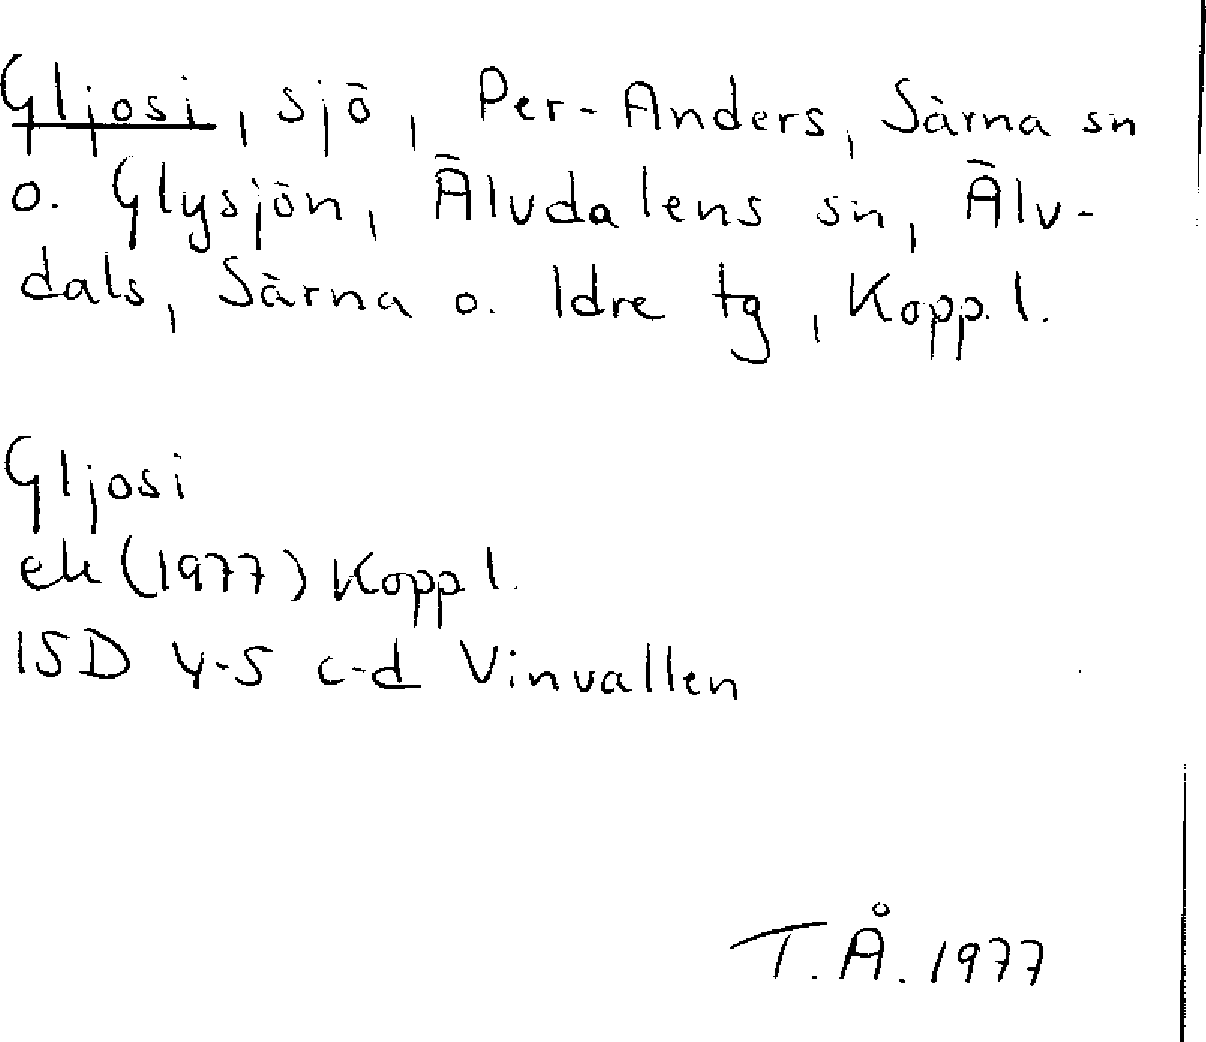 Gljosi, sjö, Per-Anders, Särna sn
o. Glysjön, Älvdalens sn, Älv-
dals, Särna o. Idre tg, Kopp. l.
Gljosi
ek (1977) Kopp l.
15D 4-5 c-d Vinvallen
T.Å. 1977